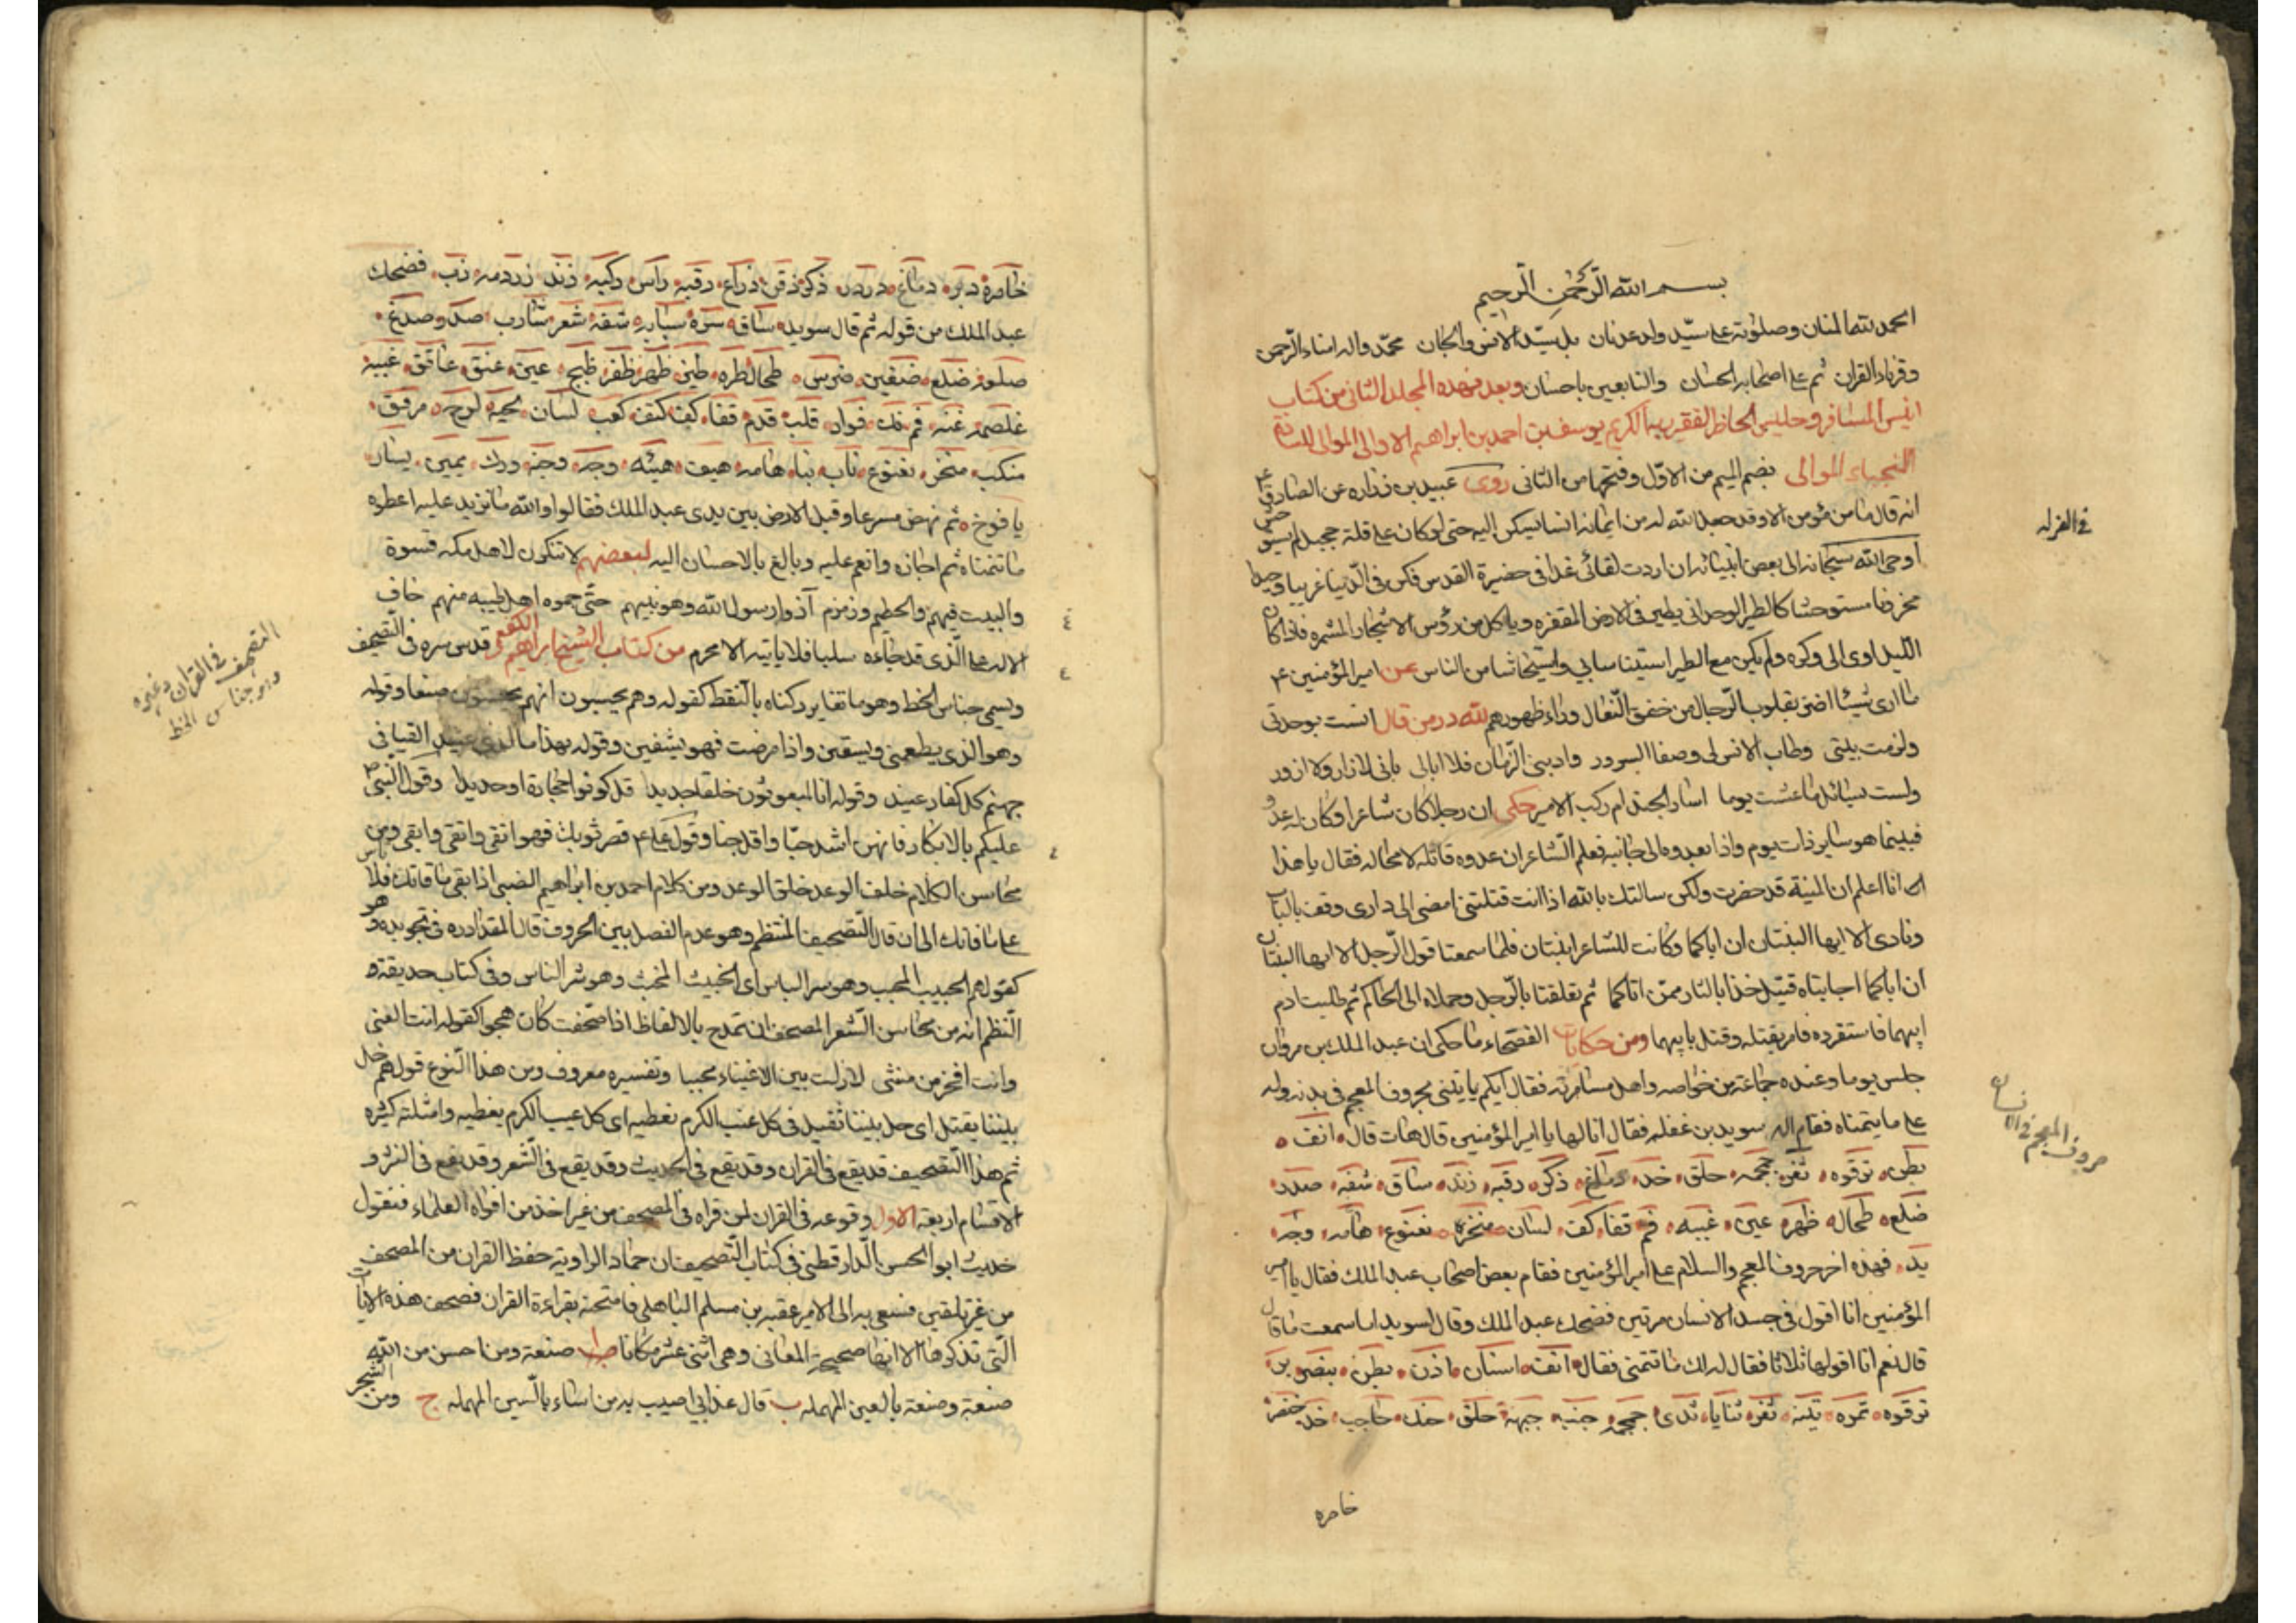 بسم الله الرحمن الرحيم
الحمد لله المنان وصلوته على سيد ولد عدنان بل سيد الانس والجان محمد واله امناء الرحمن
وقرناء القران ثم على اصحابه الحسان والتابعين باحسان وبعد فهذه المجلد الثاني من كتاب
انيس المسافر وجليس الحاضر الفقير ربه الكريم يوسف بن احمد بن ابراهيم الاوالى الموالى للسادة
النجباء الموالى بضم الميم من الاول وفتحها من الثانى روى عبيد بن زراره عن الصادق ع
انه قال ما من مؤمن الا وقد جعل الله له من ايمانه انسا يسكن اليه حتى لو كان على قلة جبل لم يستوحش
اوحى الله سبحانه الى بعض انبيائه ان اردت لقائى غدا فى حضيرة القدس فكن فى الدنيا غريبا وحيدا
محزونا مستوحشا كالطير الوحدانى يطير فى الارض المقفره وياكل من رؤس الاشجار المثمره فاذا كان
الليل اوى الى وكره ولم يكن مع الطير استيناسا بي واستيحاشا من الناس عن امير المؤمنين ع
ما ارى شيئا اضر بقلوب الرجال من خفق النعال وراء ظهورهم لله در من قال انست بوحدتى
ولزمت بيتى وطاب الانس لى وصفا السرور وادبنى الزمان فلا ابالى بانى لا ازار ولا ازور
ولست بسائل ما عشت يوما اسار الجند ام ركب الامير حكى ان رجلا كان شاعرا وكان له عدو
فبينما هو ساير ذات يوم واذا بعدوه الى جانبه فعلم الشاعر ان عدوه قاتله لا محاله فقال يا هذا
انا اعلم ان المنية قد حضرت ولكن سالتك بالله اذا انت قتلتنى امضى الى دارى وقف بالباب
ونادى الا ايها البنتان ان اباكما وكانت للشاعر ابنتان فلما سمعتا قول الرجل الا ايها البنتان
ان اباكما اجابتاه قتيل خذا بالثار ممن اتاكما ثم تعلقتا بالرجل وحملاه الى الحاكم ثم طلبت ادم
ابيهما فاستقرده فامر بقتله وقتل بابيهما ومن حكايات الفصحاء ما حكى ان عبد الملك بن مروان
جلس يوما وعنده جماعة من خواصه واهل مسامرته فقال ايكم ياتينى بحروف المعجم فى بدنه وله
على ما يتمناه فقام اليه سويد بن غفله فقال انا لها يا امير المؤمنين قال هات قال انف
بطن ترقوه ثغر جمجمه حلق خد دماغ ذكر رقبه زند ساق شفه صدر
ضلع طحال ظهر عين غببه فم قفا كف لسان منخره نغنوع هامه وجه
يد فهذه اخر حروف المعجم والسلام على امير المؤمنين فقام بعض اصحاب عبد الملك فقال يا امير
المؤمنين انا اقول فى جسد الانسان مرتين فضحك عبد الملك وقال لسويد اما سمعت ما قال
قال نعم انا اقولها ثلاثا فقال له لك ما تتمنى فقال انف اسنان اذن بطن بنصر بز
ترقوه تمره تينه ثغر ثنايا ثدى جمجمه جنب جبهة حلق حنك حاجب خد خنصر
خاصره
فى العزله
حروف المعجم فى الانسان
خاصره دبر دماغ دردر ذكر ذقن ذراع رقبه راس ركبه زند زردمه زب فضحك
عبد الملك من قوله ثم قال سويد ساق سره سبابه شفه شعر شارب صدر صدغ
صلعه ضلع ضفين ضرس طحال طره طيز ظهر ظفر ظبج عين عنق عاتق غببه
غلصمه غنه فم فك فواد قلب قدم قفا كف كتف كعب لسان لحيه لوح مرفق
منكب منخر نغنوع ناب نيا هامه هيف هيئه وجه وجنه ورك يمين يسار
يافوخ ثم نهض مسرعا وقبل الارض بين يدى عبد الملك فقالوا والله ما نزيد عليه اعطه
ما تمناه ثم اجازه وانعم عليه وبالغ بالاحسان اليه لبعضهم لا تنكرن لاهل مكه قسوة
والبيت فيهم والحطيم وزمزم آذوا رسول الله وهو نبيهم حتى حموه اهل طيبه منهم خاف
الاله على الذى قد جاءه سلبا فلا ياتيه الا محرم من كتاب الشيخ ابراهيم الكفعمى قدس سره فى التصحيف
ويسمى جناس الخط وهو ما تغاير ركناه بالنقط كقوله وهم يحسبون انهم يحسنون صنعا وقوله
وهو الذى يطعمنى ويسقين واذا مرضت فهو يشفين وقوله هذا ما لدى عتيد القيا فى
جهنم كل كفار عنيد وقوله انا لمبعوثون خلقا جديدا قل كونوا حجارة او حديدا وقول النبى ص
عليكم بالابكار فانهن اشد حبا واقل خبا وقول على ع قصر ثوبك فهو انقى واتقى وابقى ومن
محاسن الكلام خلف الوعد خلق الوعد ومن كلام احمد بن ابراهيم الضبى اذا بقى ما قاتك فلا تاس
على ما فاتك الى ان قال التصحيف المنتظم وهو عدم الفصل بين الحروف قال المقداد ره فى تجويده هو
كقولهم الحبيب المحب وهو سر الباس اى الخبيث المخنث وهو شر الناس وفى كتاب حديقة
النظم انه من محاسن الشعر المصحف ان تمدح بالالفاظ اذا صحفت كان هجوا كقوله انت الغنى
وانت افخر من منشى لا زلت بين الاغنياء محببا وتفسيره معروف ومن هذا النوع قولهم خل
بليننا يقتل اى حل بيتنا ثقيل فى كل عنب الكرم نعطيه اى كل عيب الكرم يغطيه وامثلته كثيره
ثم هذا التصحيف قد يقع فى القران وقد يقع فى الحديث وقد يقع فى الشعر وقد يقع فى النثر و
الاقسام اربعه الاول وقوعه فى القران لمن قراه فى المصحف من غير اخذ من افواه العلماء فنقول
حديث ابو الحسن الدارقطنى فى كتاب التصحيف ان حماد الراوية حفظ القران من المصحف
من غير تلقين فسعى به الى الامير عقبه بن مسلم الباهلى فامتحنه بقراءة القران فصحف هذه الايات
التى تذكرها الا انها صحيحة المعانى وهى اثنى عشر مكانا صنعة ومن احسن من الله
صنعة وصنعة بالعين المهمله ب قال عذابي اصيب به من اساء بالسين المهمله ج ومن الشجر
التصحيف فى القران وغيره
وهو جناس الخط